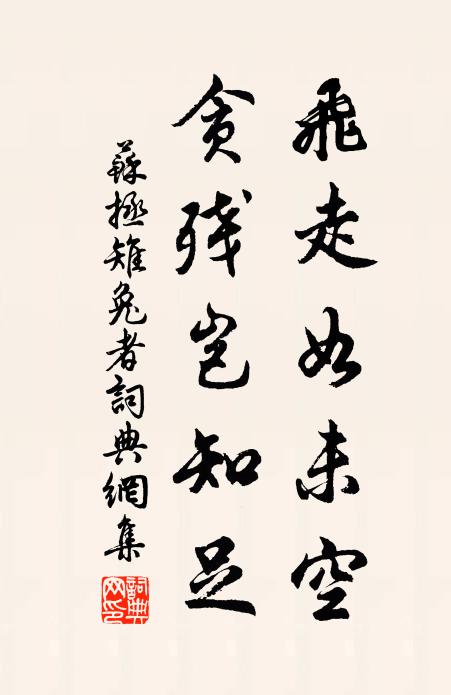 飛走如未空
貪残豈知足
蘇拯雉兔者詞典網集
詞典網印